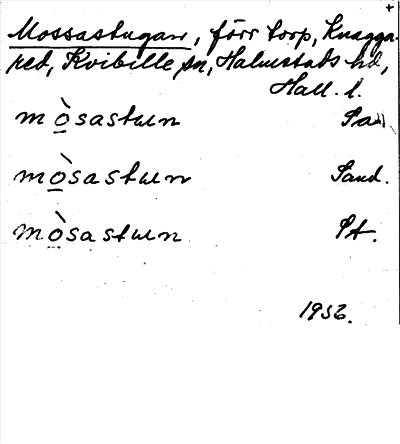 +
Mossastugan, förr torp, Knagga-
red, Kvibille sn, Halmstads hd,
Hall. l.
mòsastun Sa
mòsastun Sand.
mòsastun St.
1956.